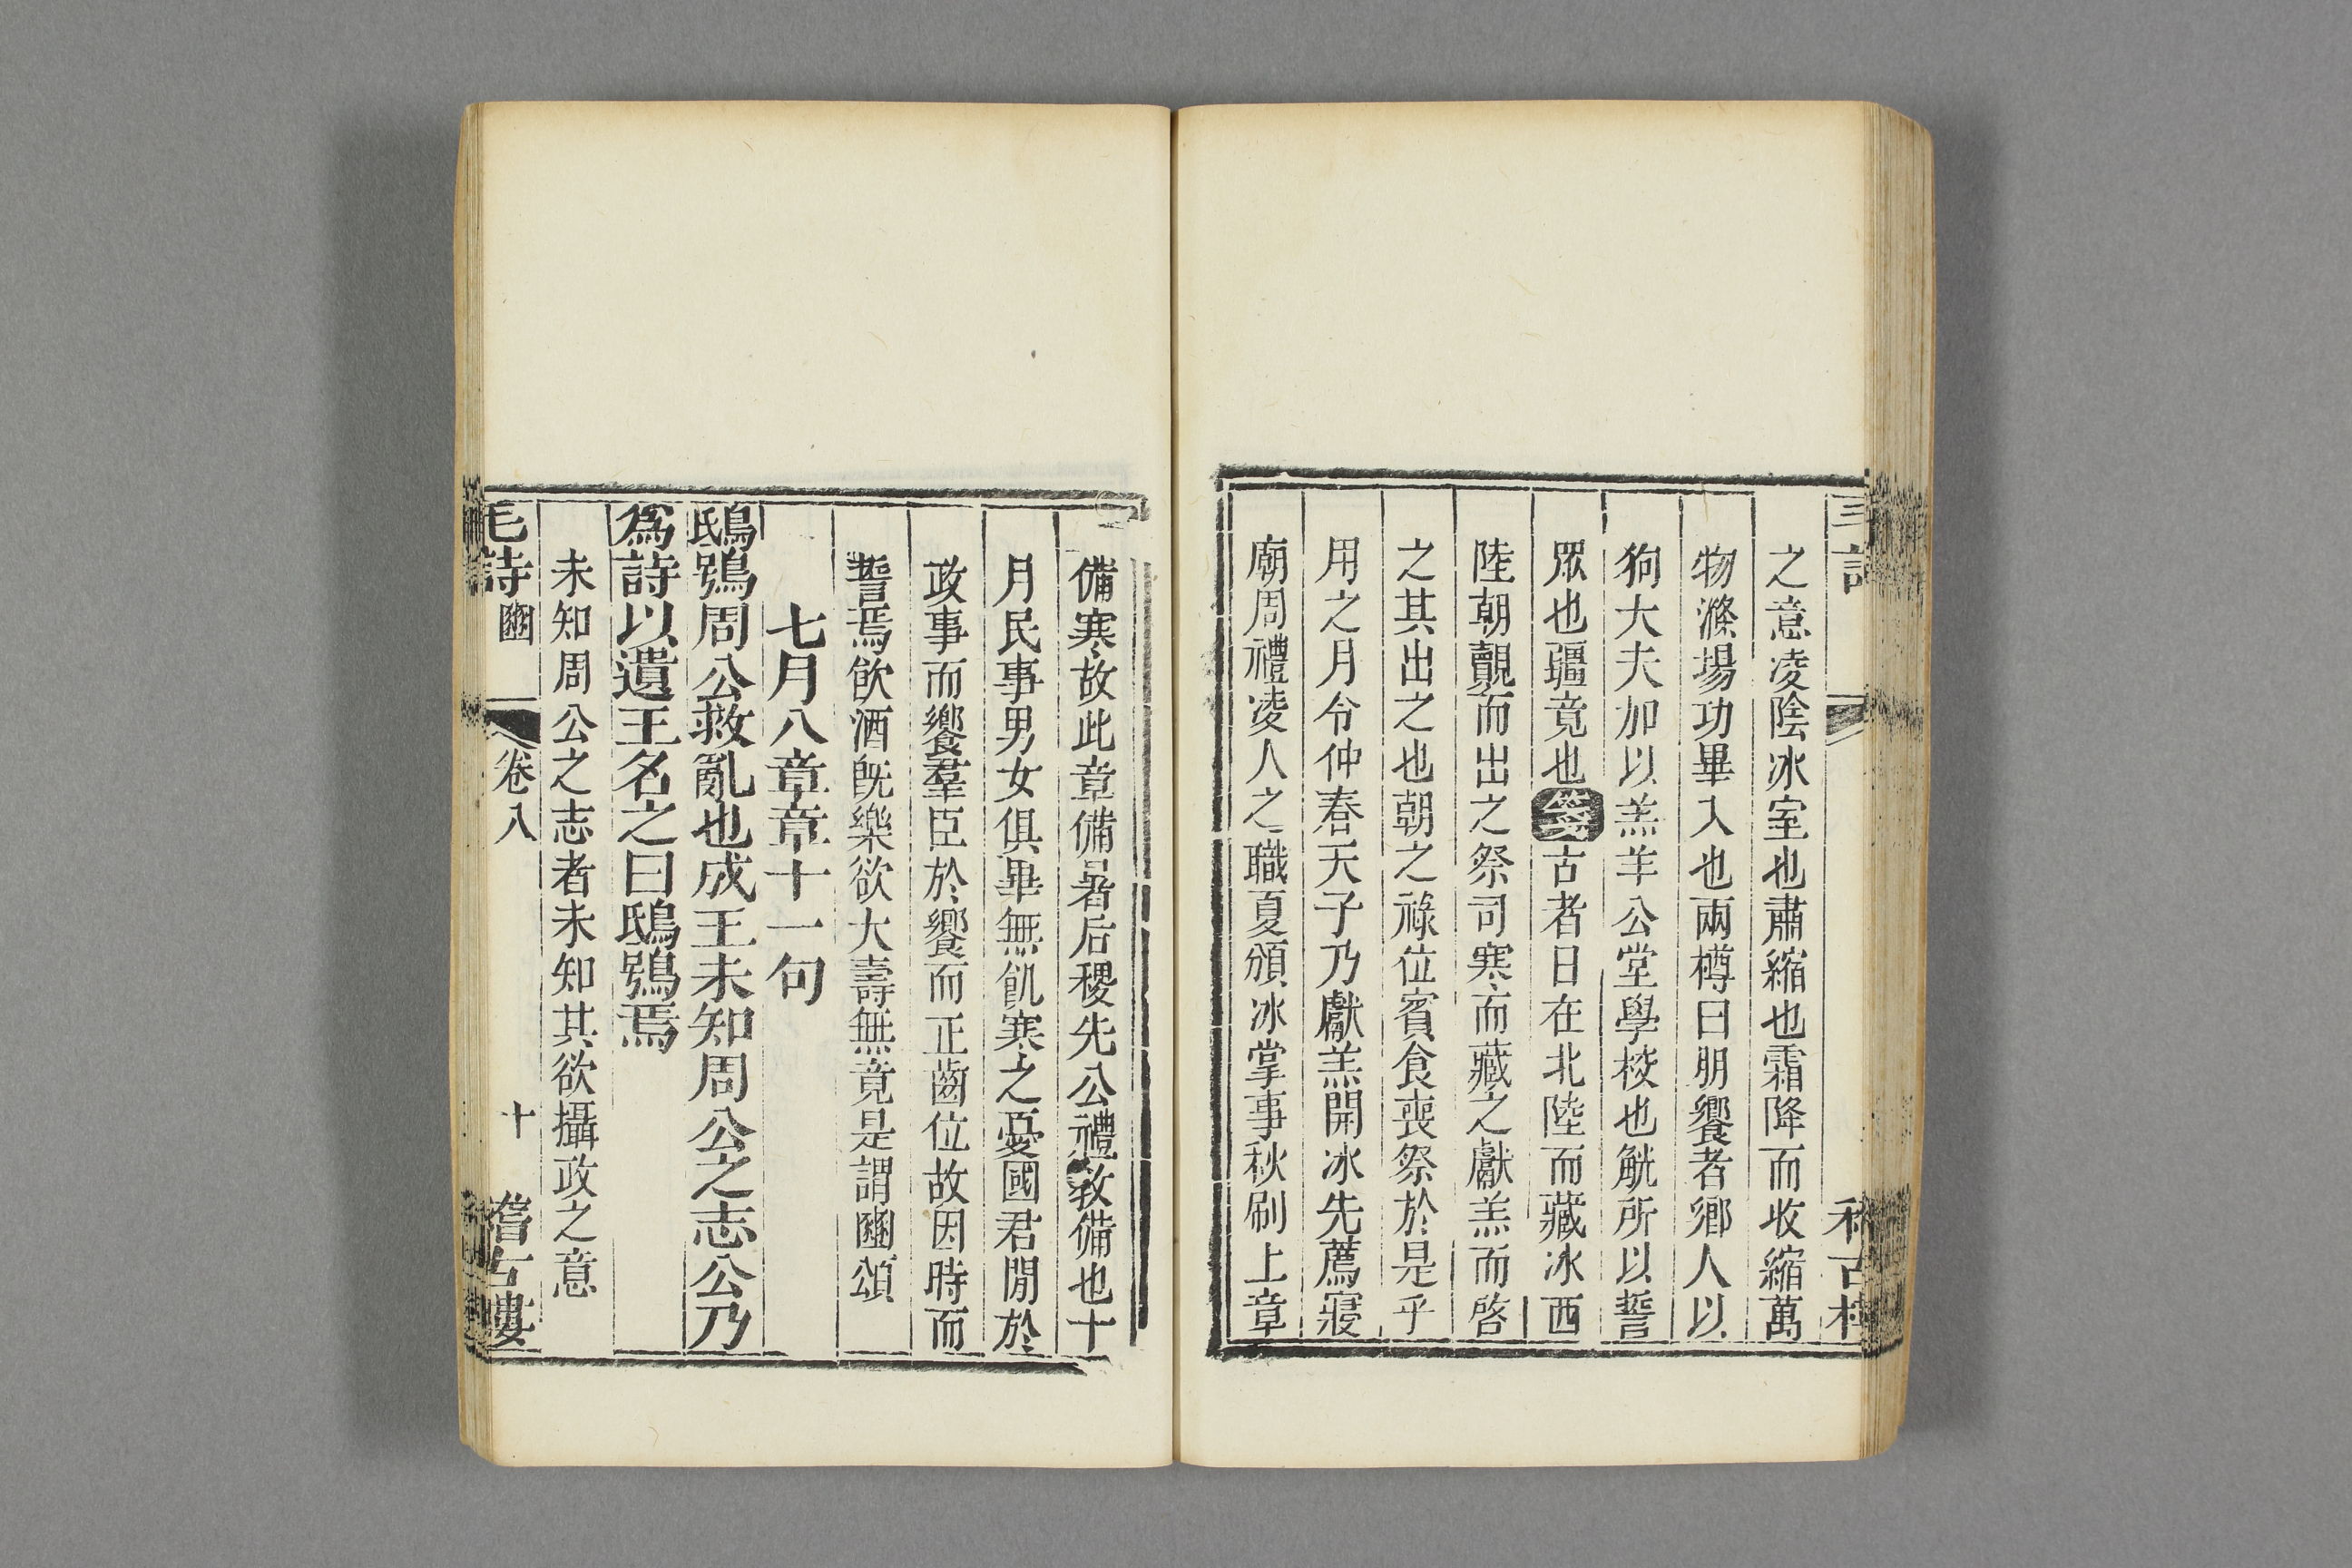 之意凌陰冰室也肅縮也霜降而收縮萬
物滌場功畢入也兩樽曰朋饗者鄉人以
狗大夫加以羔羊公堂學校也觥所以誓
眾也疆竟也箋古者日在北陸而藏冰西
陸朝覿而出之祭司寒而藏之獻羔而啓
之其出之也朝之祿位賓食喪祭於是乎
用之月令仲春天子乃獻羔開冰先薦寢
廟周禮凌人之職夏頒冰掌事秋刷上章
備寒故此章備暑后稷先公禮敎備也十
月民事男女俱畢無飢寒之憂國君閒於
政事而饗羣臣於饗而正齒位故因時而
誓焉飲酒旣樂欲大壽無竟是謂豳頌
七月八章章十一句
鴟鴞周公救亂也成王未知周公之志公乃
爲詩以遺王名之曰鴟鴞焉
未知周公之志者未知其欲攝政之意
毛詩 豳 卷八 十